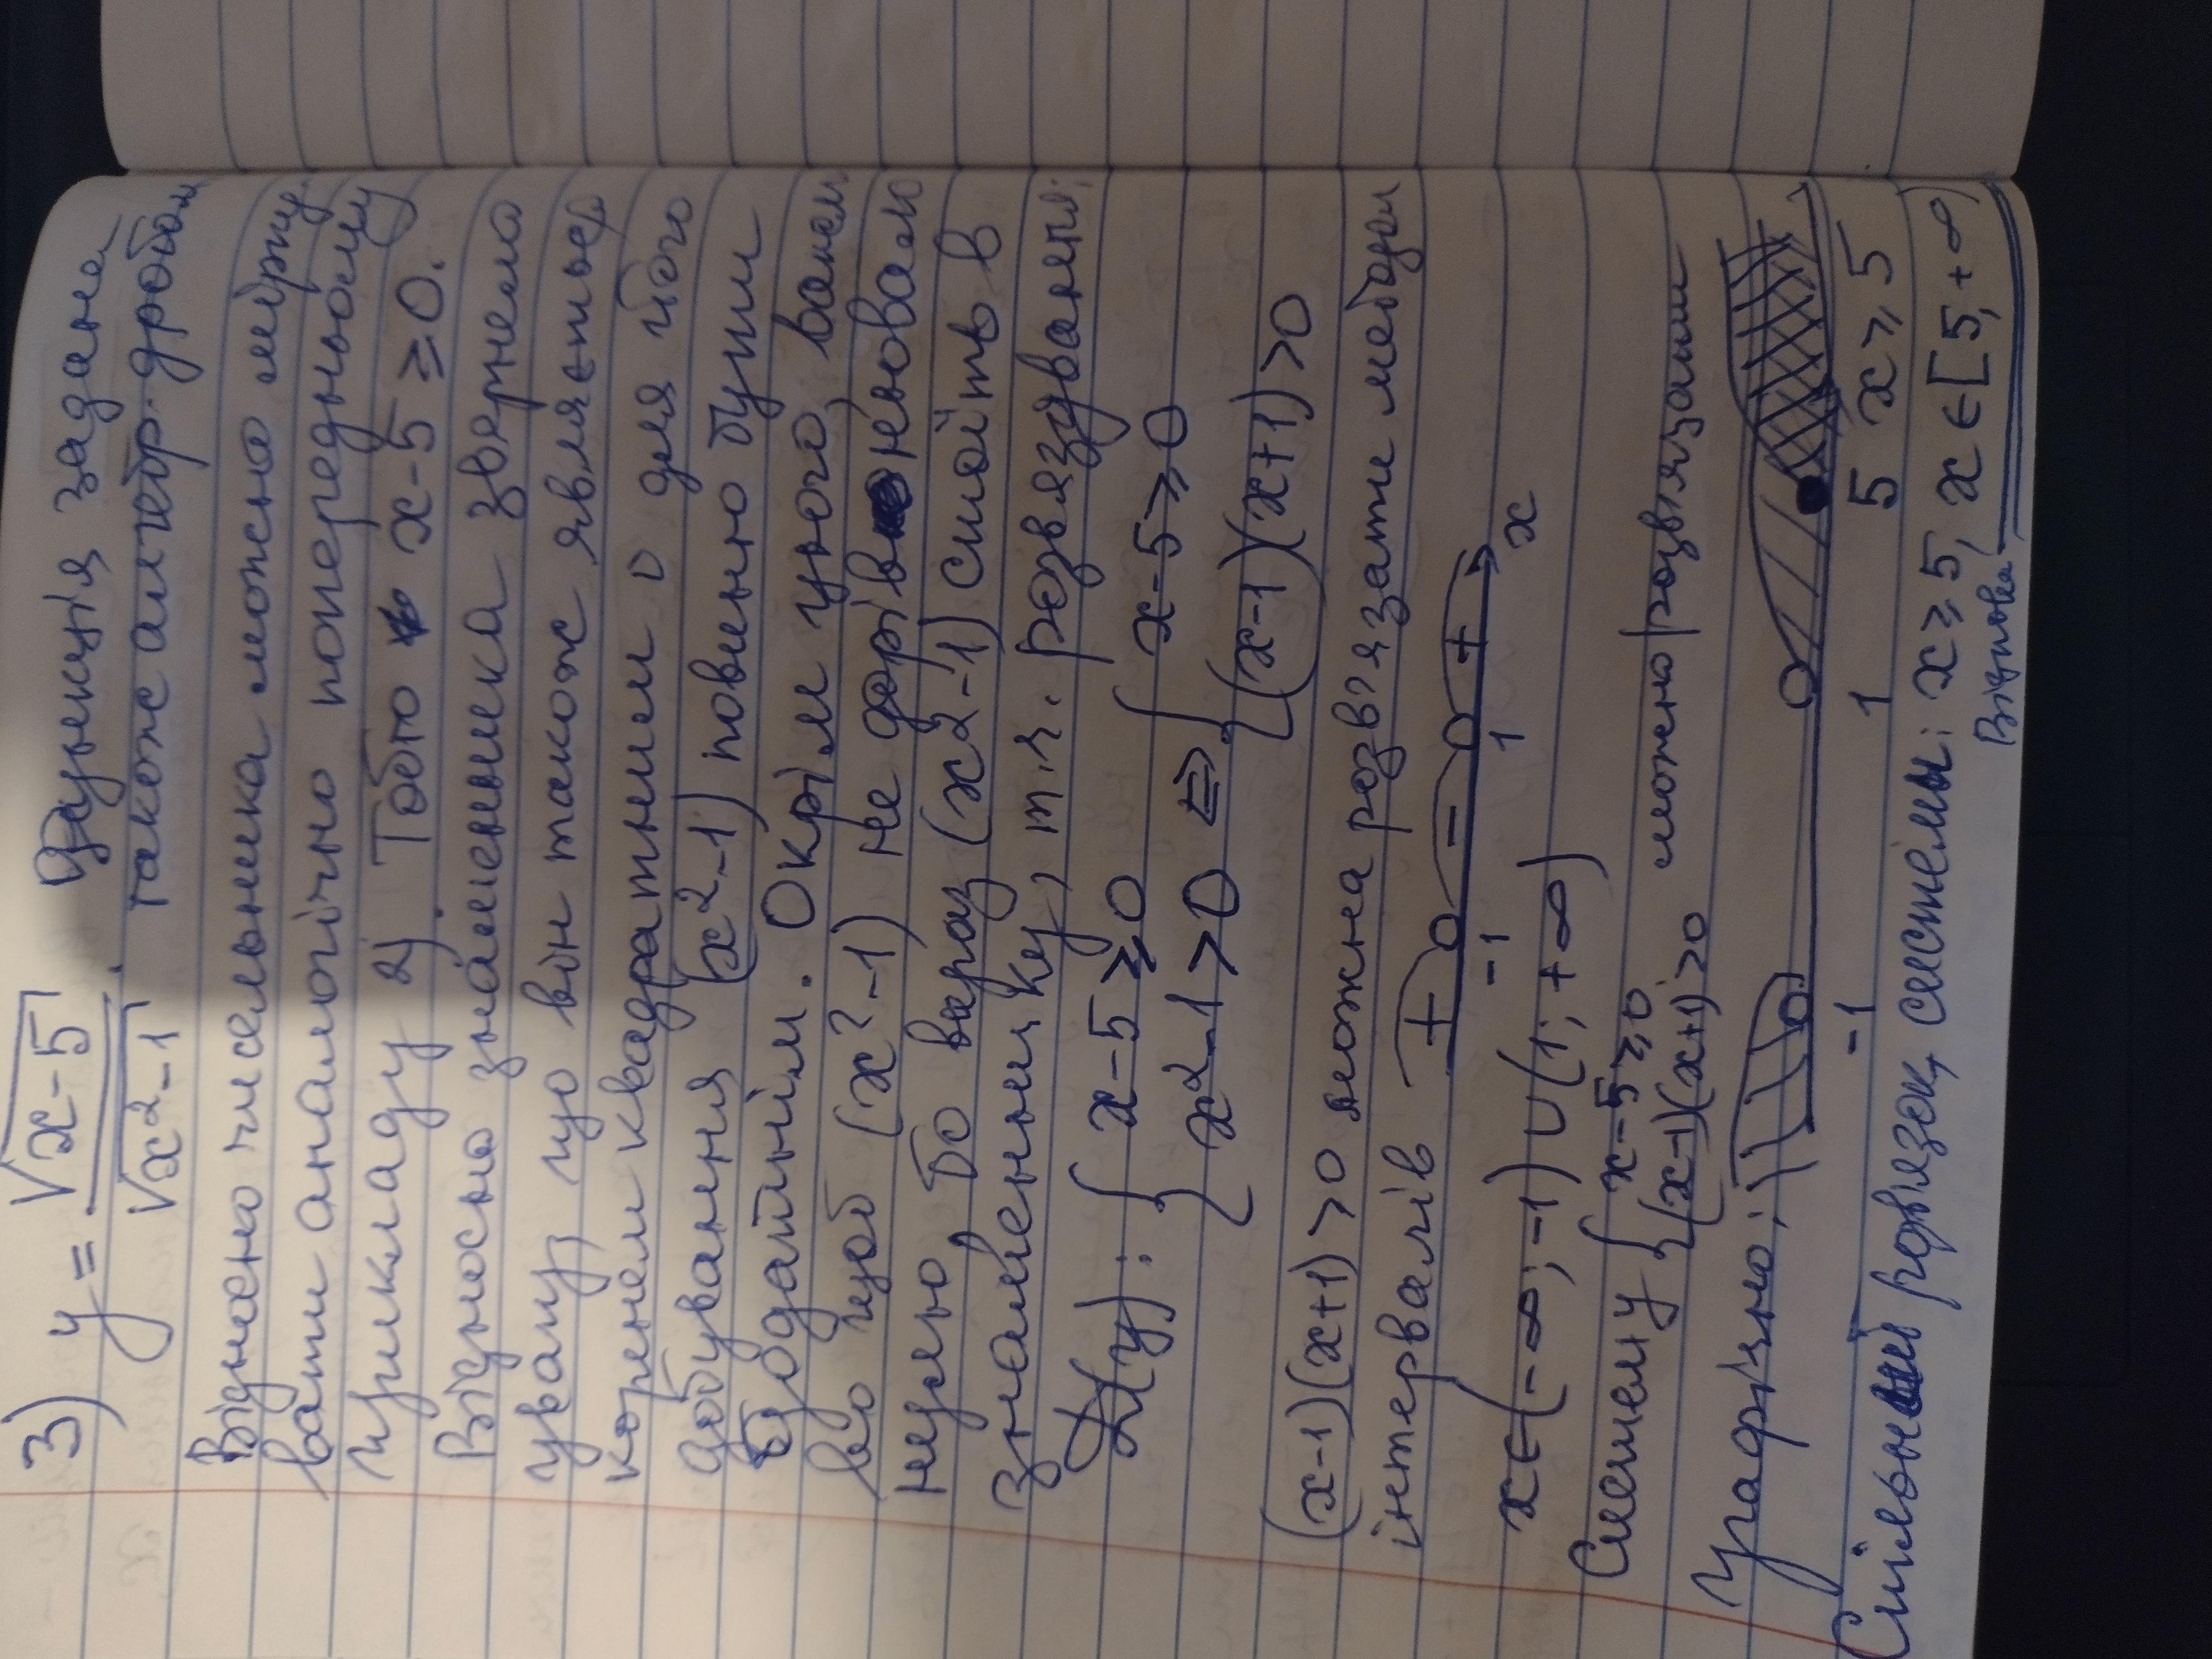 3) y = √(x-5) / √(x²-1). Функція задана
також алгебр. дробом
Відносно чисельника можно мірку-
вати аналогічно попередньому
прикладу 2). Тобто x-5 ≥ 0.
Відносно знаменника звернемо
увагу, що він також являється
коренем квадратним і для його
добування (x²-1) повинно бути
додатнім. Окрім цього, важли-
во щоб (x²-1) не дорівнювало
нулю, бо вираз (x²-1) стоїть в
знаменнику, т.ч. розвязування:
D(y): { x-5 ≥ 0 { x-5 ≥ 0
x²-1 > 0 ⇔ (x-1)(x+1) > 0
(x-1)(x+1) > 0 можна розв'язати методом
інтервалів + - +
-1 1 x
x ∈ (-∞; -1) ∪ (1; +∞)
Систему { x-5 ≥ 0
(x-1)(x+1) > 0 можно розв'язати
графічно:
-1 1 5 x ≥ 5
Спільный розвязок системы: x ≥ 5, x ∈ [5; +∞)
Відповідь